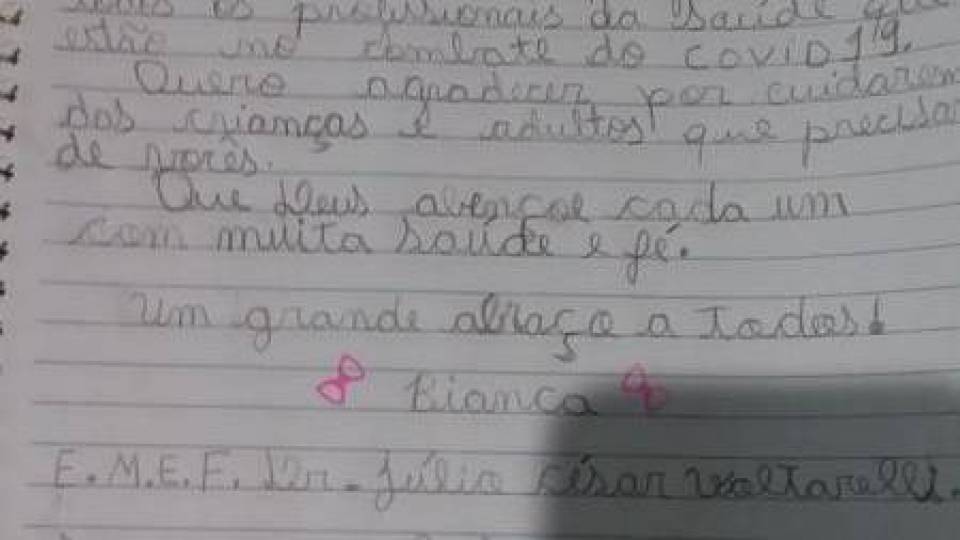 os profissionais da saúde que
estão no combate do COVID 19.
Quero agradecer por cuidarem
das crianças e adultos que precisa
de vocês.
Que Deus abençoe cada um
com muita saúde e fé.
Um grande abraço a todos!
Bianca
E.M.E.F. Dr. Júlio César Voltarelli.